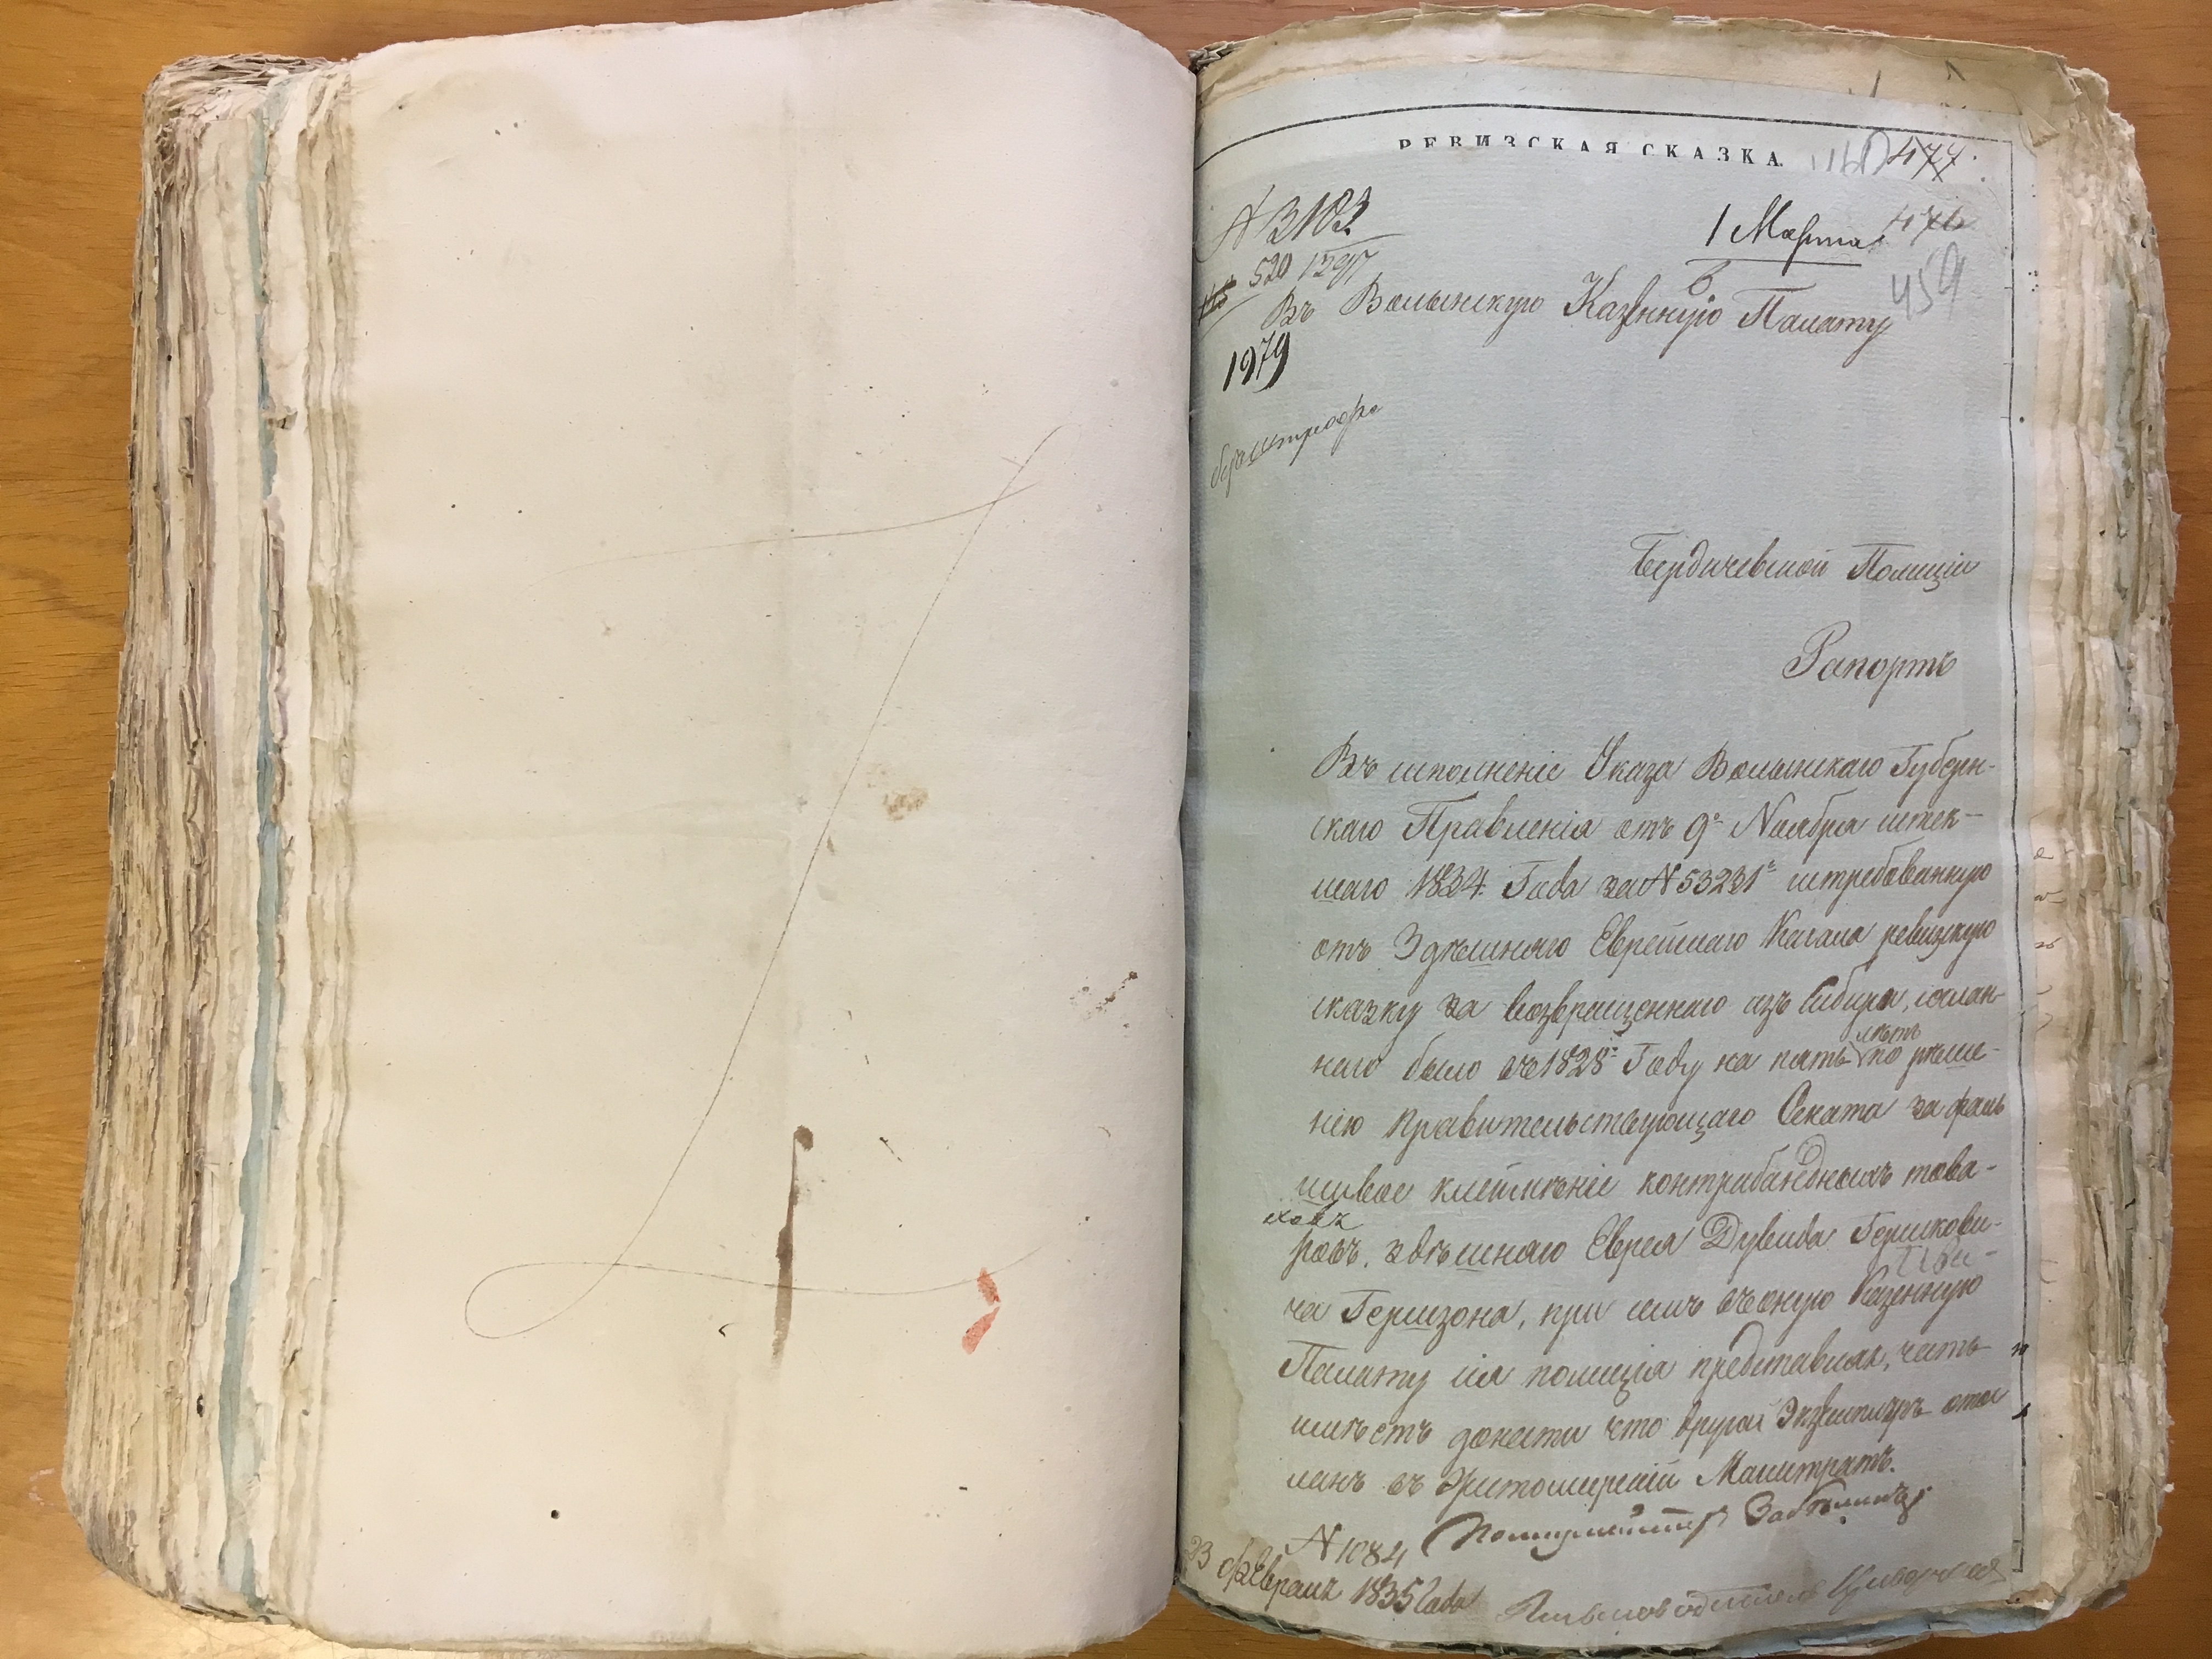 РЕВИЗСКАЯ СКАЗКА.
477
№ 3183
1 Марта 476
520
459
Въ Волынскую Казенную Палату
1979
Бердичевской Полиціи
Рапортъ
Въ исполненіе Указа Волынскаго Губерн-
скаго Правленія отъ 9го Ноября истек-
шаго 1834 Года за № 53231м истребованную
отъ Здѣшняго Еврейскаго Кагала ревизкую
сказку за возвращеннаго изъ Сибири, сослан-
наго было въ 1828м Году на пять лѣтъ по рѣше-
нію Правительствующаго Сената за фаль
шивое клейменіе контрабандныхъ това-
ровъ, здѣшняго Еврея Дувида Гершкови-
ча Гершзона, при семъ въ оную Казенную
Палату сія полиція представляя, честь
имѣетъ донести что другой Экземпляръ отос
ланъ въ Житомирскій Магистратъ.
Полицмейстеръ
№ 1084
23 февраля 1835 Года
Письмоводитель